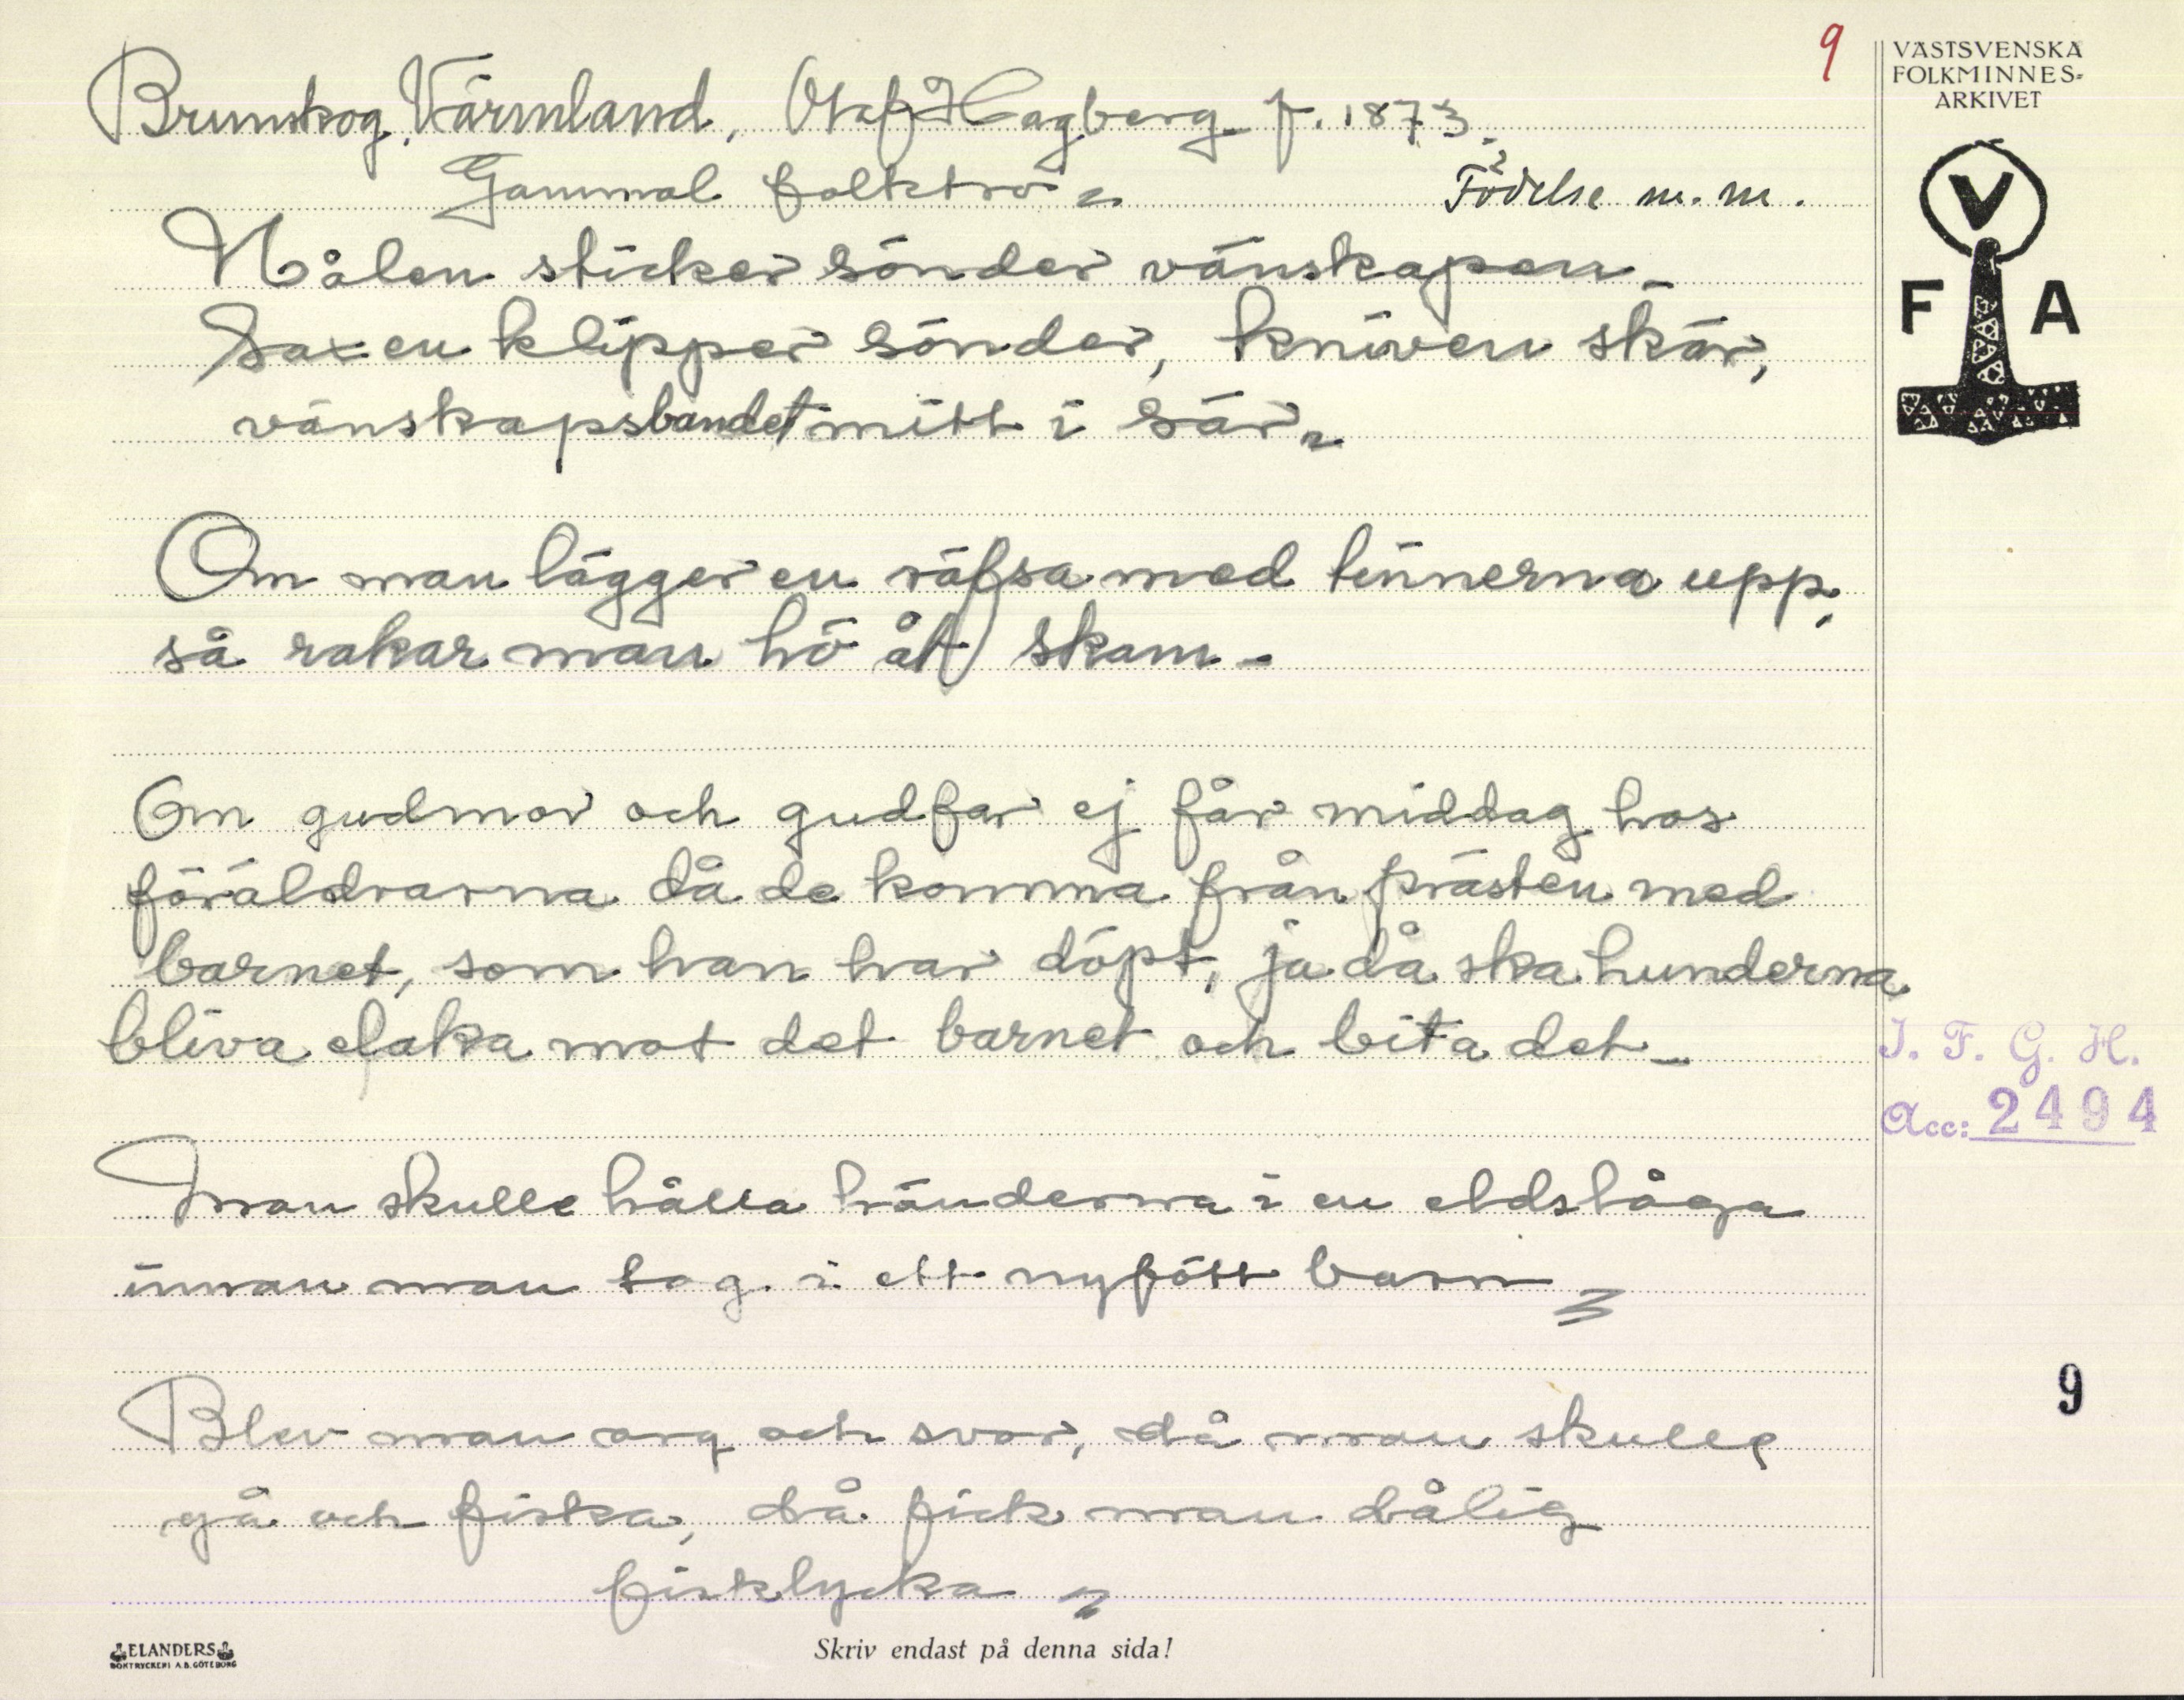 9
VÄSTSVENSKA
FOLKMINNES-
ARKIVET
V
F A
Brunskog, Värmland, Olof Hagberg f. 1873.
Gammal folktro
Födelse m. m.
Nålen sticker sönder vänskapen.
Saxen klipper sönder, kniven skär,
vänskapsbandet mitt i sär
Om man lägger en räfsa med tinnerna upp,
så rakar man hö åt skam.
Om gudmor och gudfar ej får middag hos
föräldrarna då de komma från prästen med
barnet, som han har döpt, ja då ska hunderna
bliva elaka mot det barnet och bita det
I. F. G. H.
Acc: 2494
Man skulle hålla händerna i en eldslåga
innan man tog i ett nyfött barn
9
Blev man arg och svor, då man skulle
gå och fiska, då fick man dålig
fisklycka
ELANDERS
BOKTRYCKERI A.B. GÖTEBORG
Skriv endast på denna sida!